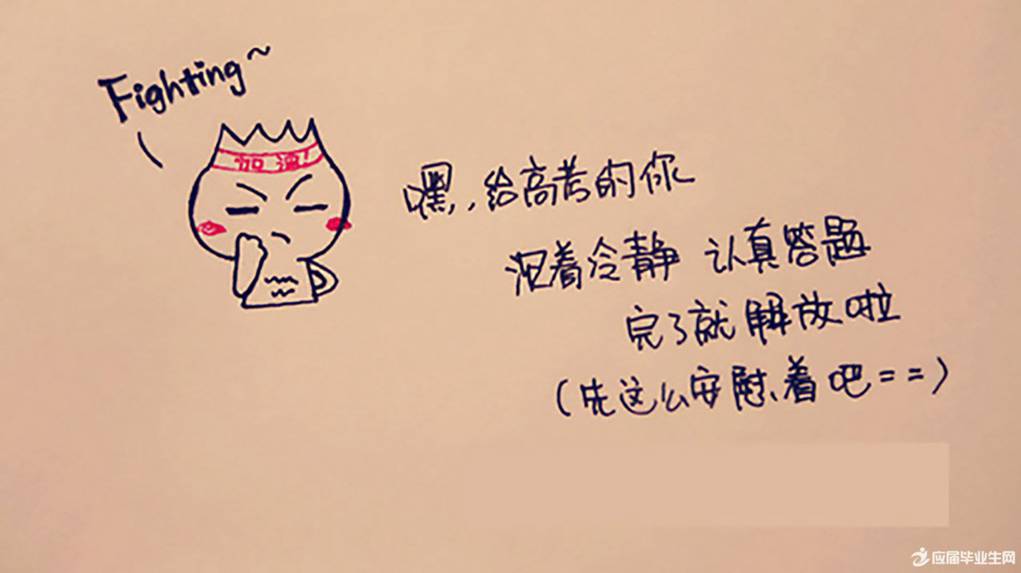 Fighting~
加油!
嘿,,给高考的你
沉着冷静 认真答题
完了就解放啦
(先这么安慰着吧==)
应届毕业生网